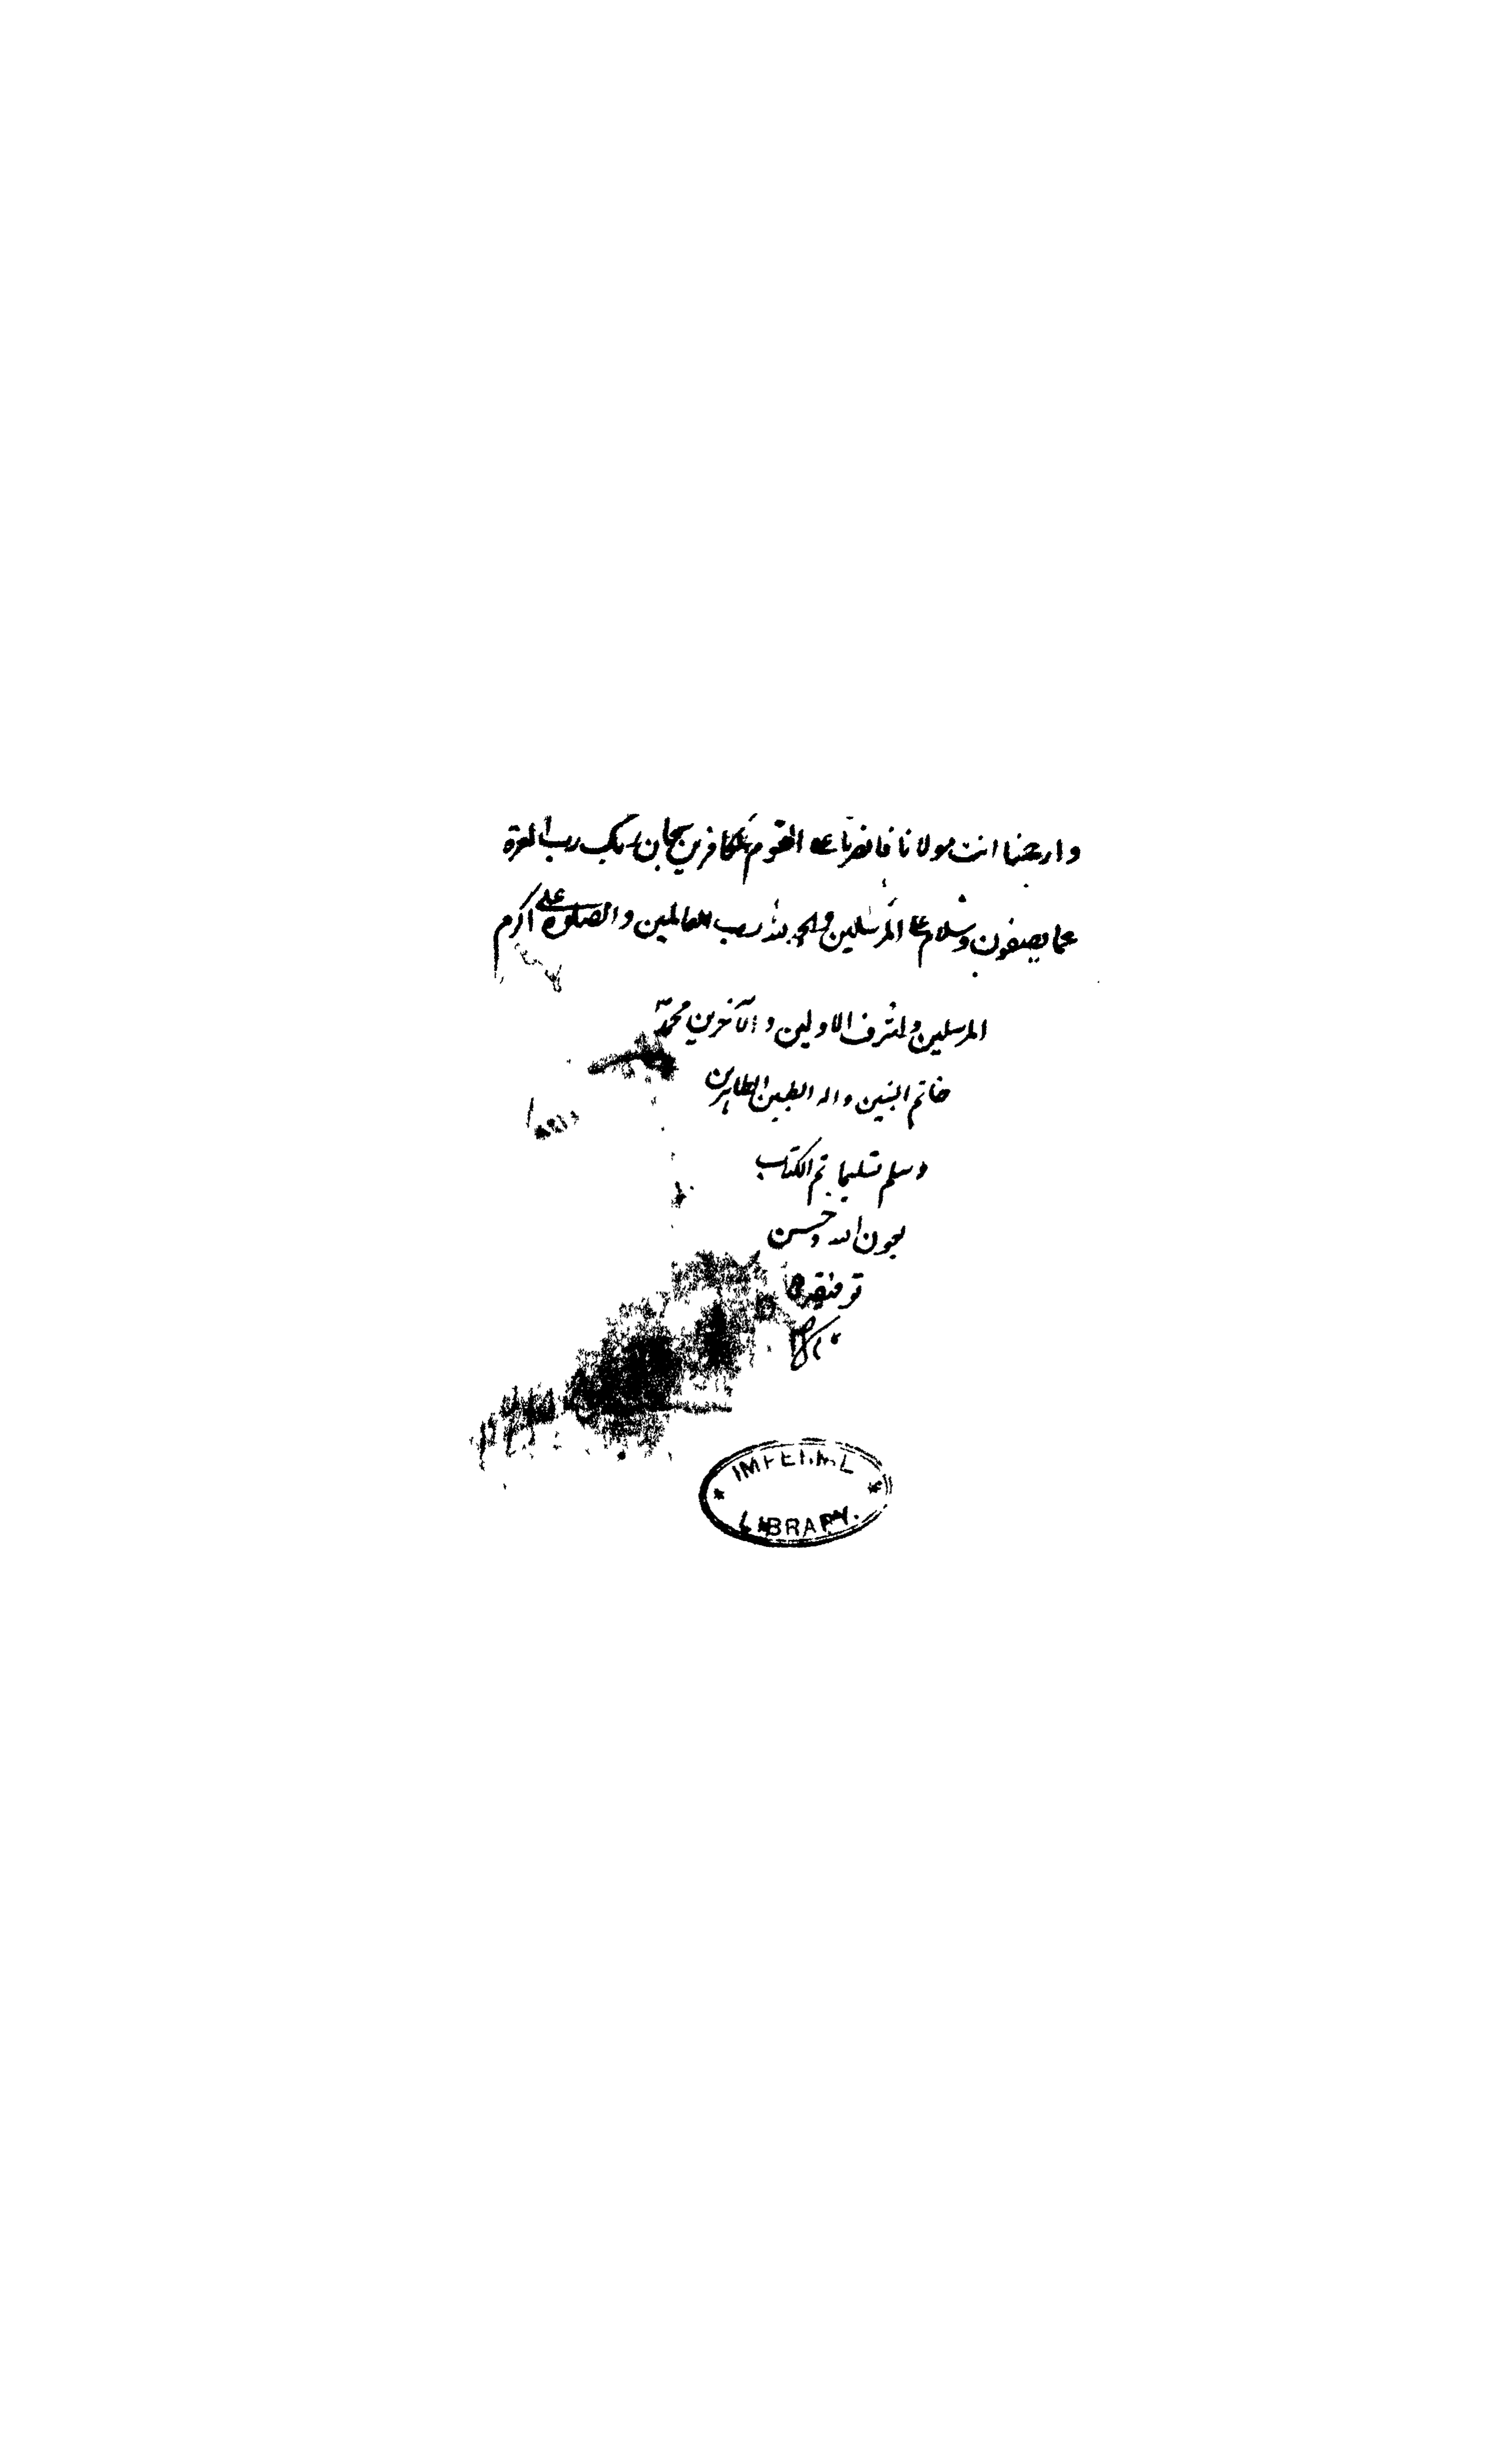 وارحمنا انت مولانا فانصرنا على القوم الكافرين سبحان ربك رب العزة
عما يصفون وسلام على المرسلين والحمد لله رب العالمين والصلوة على اكرم
المرسلين واشرف الاولين والآخرين محمد
خاتم النبيين واله الطيبين الطاهرين
وسلم تسليما تم الكتاب
بعون الله وحسن
توفيقه
IMPERIAL
LIBRARY.